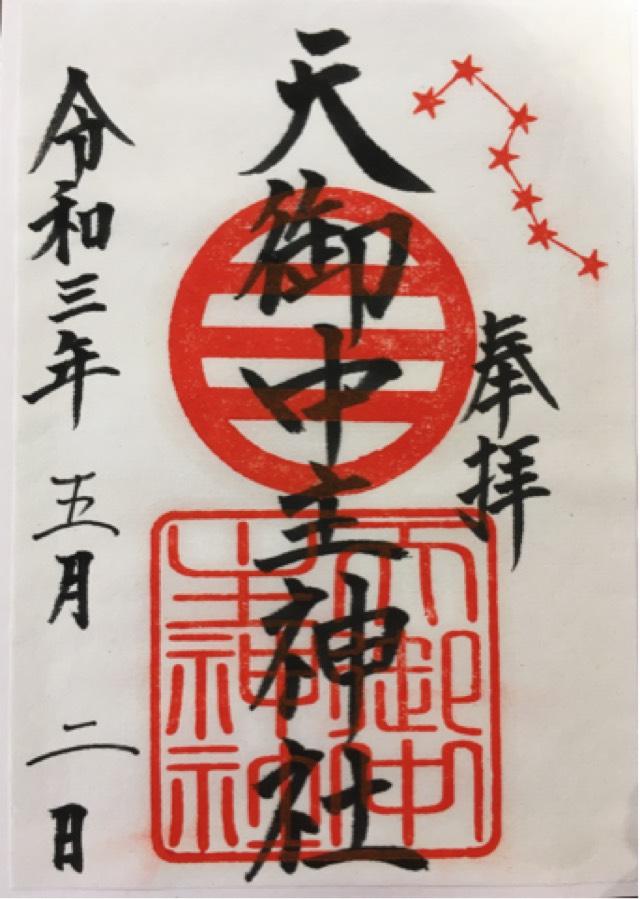 奉拝
天御中主神社
天御中主神社
令和三年五月二日